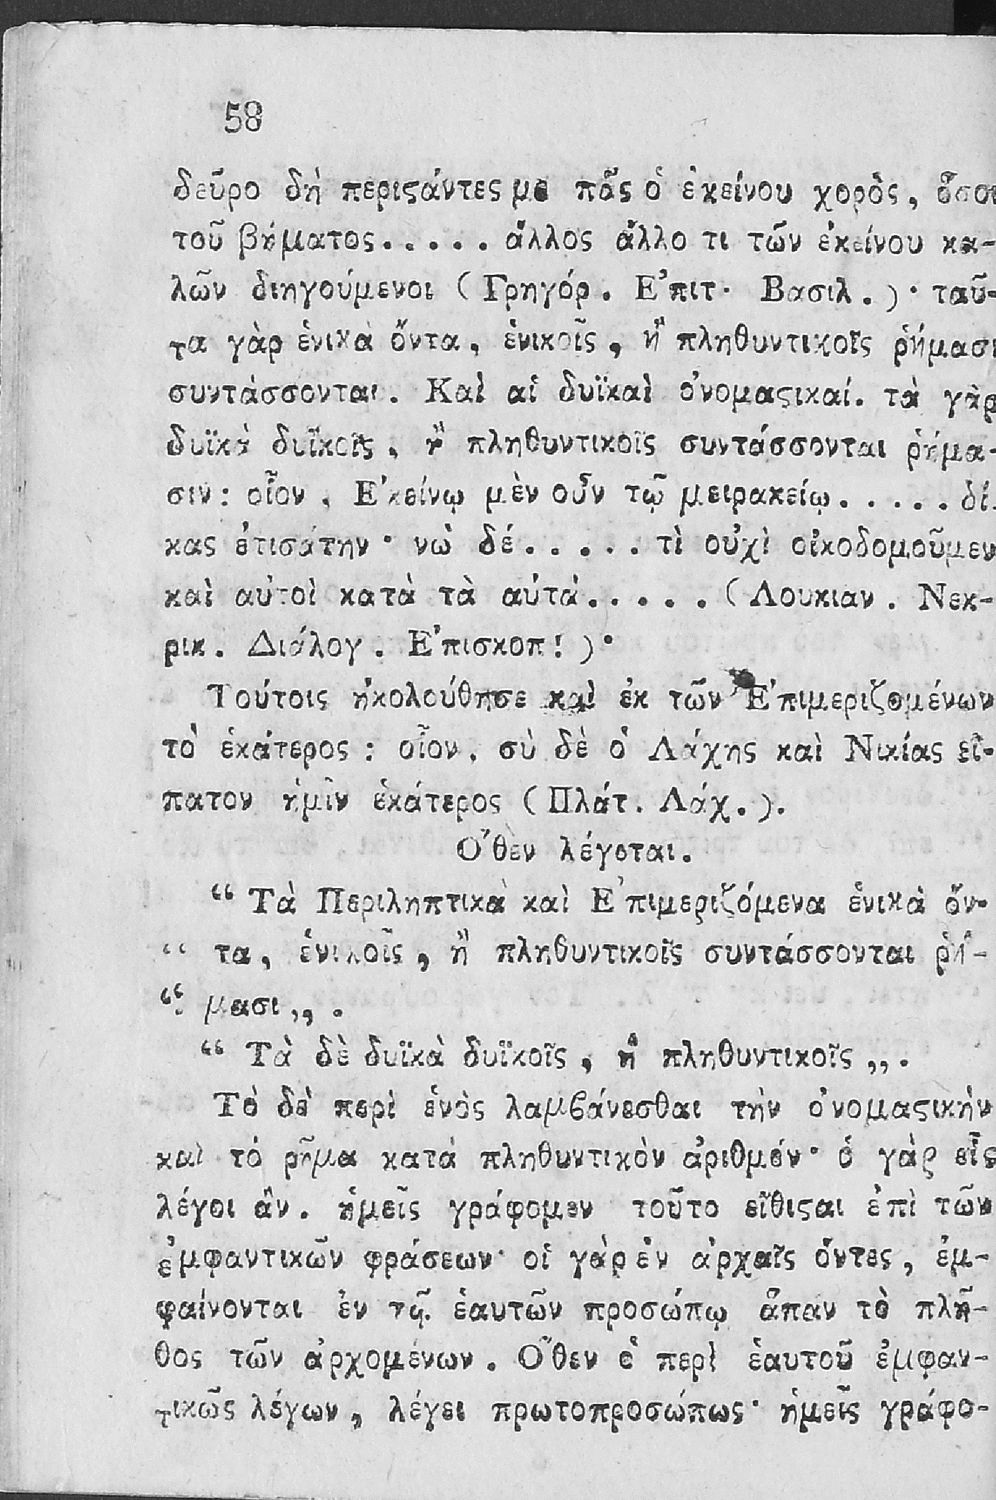 58
δεῦρο δή περιϛάντες με πᾶς ὁ ἐκείνου χορὸς, ὅσοι
τοῦ βήματος..... ἄλλος ἄλλο τι τῶν ἐκείνου κα-
λῶν διηγούμενοι (Γρηγόρ. Ἐπιτ. Βασιλ.)· ταῦ-
τα γὰρ ἑνικὰ ὄντα, ἑνικοῖς, ἢ πληθυντικοῖς ῥήμασι
συντάσσονται. Καὶ αἱ δυϊκαὶ ὀνομαϛικαί. τὰ γὰρ
δυϊκὰ δυϊκοῖς, ἢ πληθυντικοῖς συντάσσονται ῥήμα-
σιν: οἷον, Ἐκείνῳ μὲν οὖν τῷ μειρακείῳ..... δί-
κας ἐτισάτην· νὼ δέ..... τὶ οὐχὶ οἰκοδομοῦμεν
καὶ αὐτοὶ κατὰ τὰ αὐτά..... (Λουκιαν. Νεκ-
ρικ. Διάλογ. Ἐπισκοπ!)·
Τούτοις ἠκολούθησε καὶ ἐκ τῶν Ἐπιμεριζομένων
τὸ ἑκάτερος: οἷον, σὺ δὲ ὁ Λάχης καὶ Νικίας εἴ-
πατον ἡμῖν ἑκάτερος (Πλάτ. Λάχ.).
Ὅθεν λέγεται.
“ Τὰ Περιληπτικὰ καὶ Ἐπιμεριζόμενα ἑνικὰ ὄν-
“ τα, ἑνικοῖς, ἢ πληθυντικοῖς συντάσσονται ῥή-
“ μασι,, .
“ Τὰ δὲ δυϊκὰ δυϊκοῖς, ἢ πληθυντικοῖς ,, .
Τὸ δὲ περὶ ἑνὸς λαμϐάνεσθαι τὴν ὀνομαϛικὴν
καὶ τό ρῆμα κατὰ πληθυντικὸν ἀριθμόν· ὁ γὰρ εἷς
λέγοι ἂν. ἡμεῖς γράφομεν τοῦτο εἴθιϛαι ἐπὶ τῶν
ἐμφαντικῶν φράσεων· οἱ γὰρ ἐν ἀρχαῖς ὄντες, ἐμ-
φαίνονται ἐν τῷ. ἑαυτῶν προσώπῳ ἅπαν τὸ πλῆ-
θος τῶν ἀρχομένων. Ὅθεν ὁ περὶ ἑαυτοῦ ἐμφαν-
τικῶς λέγων, λέγει πρωτοπροσώπως· ἡμεῖς γράφο-